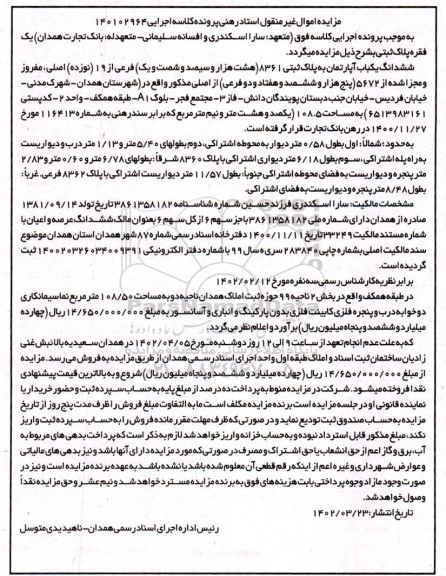 مزایده اموال غیر منقول اسناد رهنی پرونده کلاسه اجرایی ۱۴۰۱۰۲۹۶۴
به موجب پرونده اجرایی کلاسه فوق (متعهد: سارا اسکندری و افسانه سلیمانی- متعهدله: بانک تجارت همدان) یک
فقره پلاک ثبتی بشرح ذیل مزایده میگردد.
ششدانگ یکباب آپارتمان به پلاک ثبتی ۸۳۶۱ (هشت هزار و سیصد و شصت و یک) فرعی از ۱۹ (نوزده) اصلی، مفروز
و مجزا شده از ۵۶۷۲ (پنج هزار و ششصد و هفتاد و دو فرعی) از اصلی مذکور واقع در (شهرستان همدان - شهرک مدنی-
خیابان فردیس- خیابان جنب دبستان پویندگان دانش- فاز ۳- مجتمع فجر- بلوک A1- طبقه همکف- واحد ۲- کدپستی
۶۵۱۳۹۸۳۱۶۱) به مساحت ۱۰۸.۵ (یکصد و هشت متر و نیم متر مربع که برابر سند رهنی به شماره ۱۱۶۴۱۳ مورخ
۱۴۰۰/۱۱/۲۷ در رهن بانک تجارت قرار گرفته است.
به حدود: شمالاً: اول بطول ۰/۵۸ متر دیوار به محوطه اشتراکی، دوم بطولهای ۵/۴۰ متر و ۱/۱۳ متر درب و دیواریست
به راه پله اشتراکی، سوم بطول ۶/۱۸ متر دیواری اشتراکی با پلاک ۸۳۶۰ شرقاً: بطولهای ۶/۷۸ متر و ۰/۶۰ متر و ۲/۸۳
متر پنجره و دیواریست به فضای محوطه اشتراکی جنوباً: بطول ۱۱/۵۷ متر دیواریست اشتراکی با پلاک ۸۳۶۲ فرعی. غرباً:
بطول ۸/۴۸ متر پنجره و دیواریست به فضای اشتراکی.
مشخصات مالکیت: سارا اسکندری فرزند حسین شماره شناسنامه ۳۸۶۱۳۵۸۱۸۲ تاریخ تولد ۱۳۸۱/۰۹/۱۴
صادره از همدان دارای شماره ملی ۳۸۶۱۳۵۸۱۸۲ با جز سهم ۶ از کل سهم ۶ بعنوان مالک ششدانگ عرصه و اعیان با
شماره مستند مالکیت ۳۳۲۴۹ تاریخ ۱۴۰۰/۱۱/۱۱ دفترخانه اسناد رسمی شماره ۸۷ شهر همدان استان همدان موضوع
سند مالکیت اصلی بشماره چاپی ۲۸۳۸۴۰ سری ه سال ۹۹ با شماره دفتر الکترونیکی ۱۴۰۰۲۰۳۲۶۰۳۴۰۰۹۳۹۱ ثبت
گردیده است.
برابر نظریه کارشناس رسمی سه نفره مورخ ۱۴۰۲/۰۲/۱۲
در طبقه همکف واقع در بخش ۲ ناحیه ۹۹ حوزه ثبت املاک همدان ناحیه دو به مساحت ۱۰۸/۵۰ متر مربع نما سیمانکاری
دو خوابه درب و پنجره فلزی کابینت فلزی بدون پارکینگ و انباری و آسانسور به مبلغ ۱۴/۶۵۰/۰۰۰/۰۰۰ ریال (چهارده
میلیارد و ششصد و پنجاه میلیون ریال) برآورد و اعلام نظر می گردد.
که به علت عدم انجام تعهد از ساعت ۹ الی ۱۲ روز دوشنبه مورخ ۱۴۰۲/۰۴/۰۵ در همدان سعیدیه بالا نبش غنی
زادیان ساختمان ثبت اسناد و املاک طبقه اول واحد اجرای اسناد رسمی همدان از طریق مزایده به فروش می رسد. مزایده
از مبلغ ۱۴/۶۵۰/۰۰۰/۰۰۰ ریال (چهارده میلیارد و ششصد و پنجاه میلیون ریال) شروع و به بالاترین قیمت پیشنهادی
نقداً فروخته میشود. شرکت در مزایده منوط به پرداخت ده درصد از مبلغ پایه به حساب سپرده ثبت و حضور خریدار یا
نماینده قانونی او در جلسه مزایده است برنده مزایده مکلف است ما به التفاوت مبلغ فروش را ظرف مدت پنج روز از تاریخ
مزایده به حساب صندوق ثبت تودیع نماید و در صورتی که ظرف مهلت مقرر مانده فروش را به حساب سپرده ثبت واریز
نکند، مبلغ مذکور قابل استرداد نبوده و به حساب خزانه واریز خواهد شد لازم به ذکر است که پرداخت بدهی های مربوط به
آب، برق و گاز اعم از حق انشعاب یا حق اشتراک و مصرف در صورتی که مورد مزایده دارای آنها باشد و نیز بدهی های مالیاتی
و عوارض شهرداری و غیره اعم از اینکه رقم قطعی آن معلوم شده باشد یا نشده باشد به عهده برنده مزایده است و نیز در
صورت وجود مازاد وجوه پرداختی بابت هزینه های فوق به برنده مزایده مسترد خواهد شد و نیم عشر و حق مزایده نقداً
وصول خواهد شد.
تاریخ انتشار: ۱۴۰۲/۰۳/۲۳
رئیس اداره اجرای اسناد رسمی همدان- ناهید یدی متوسل